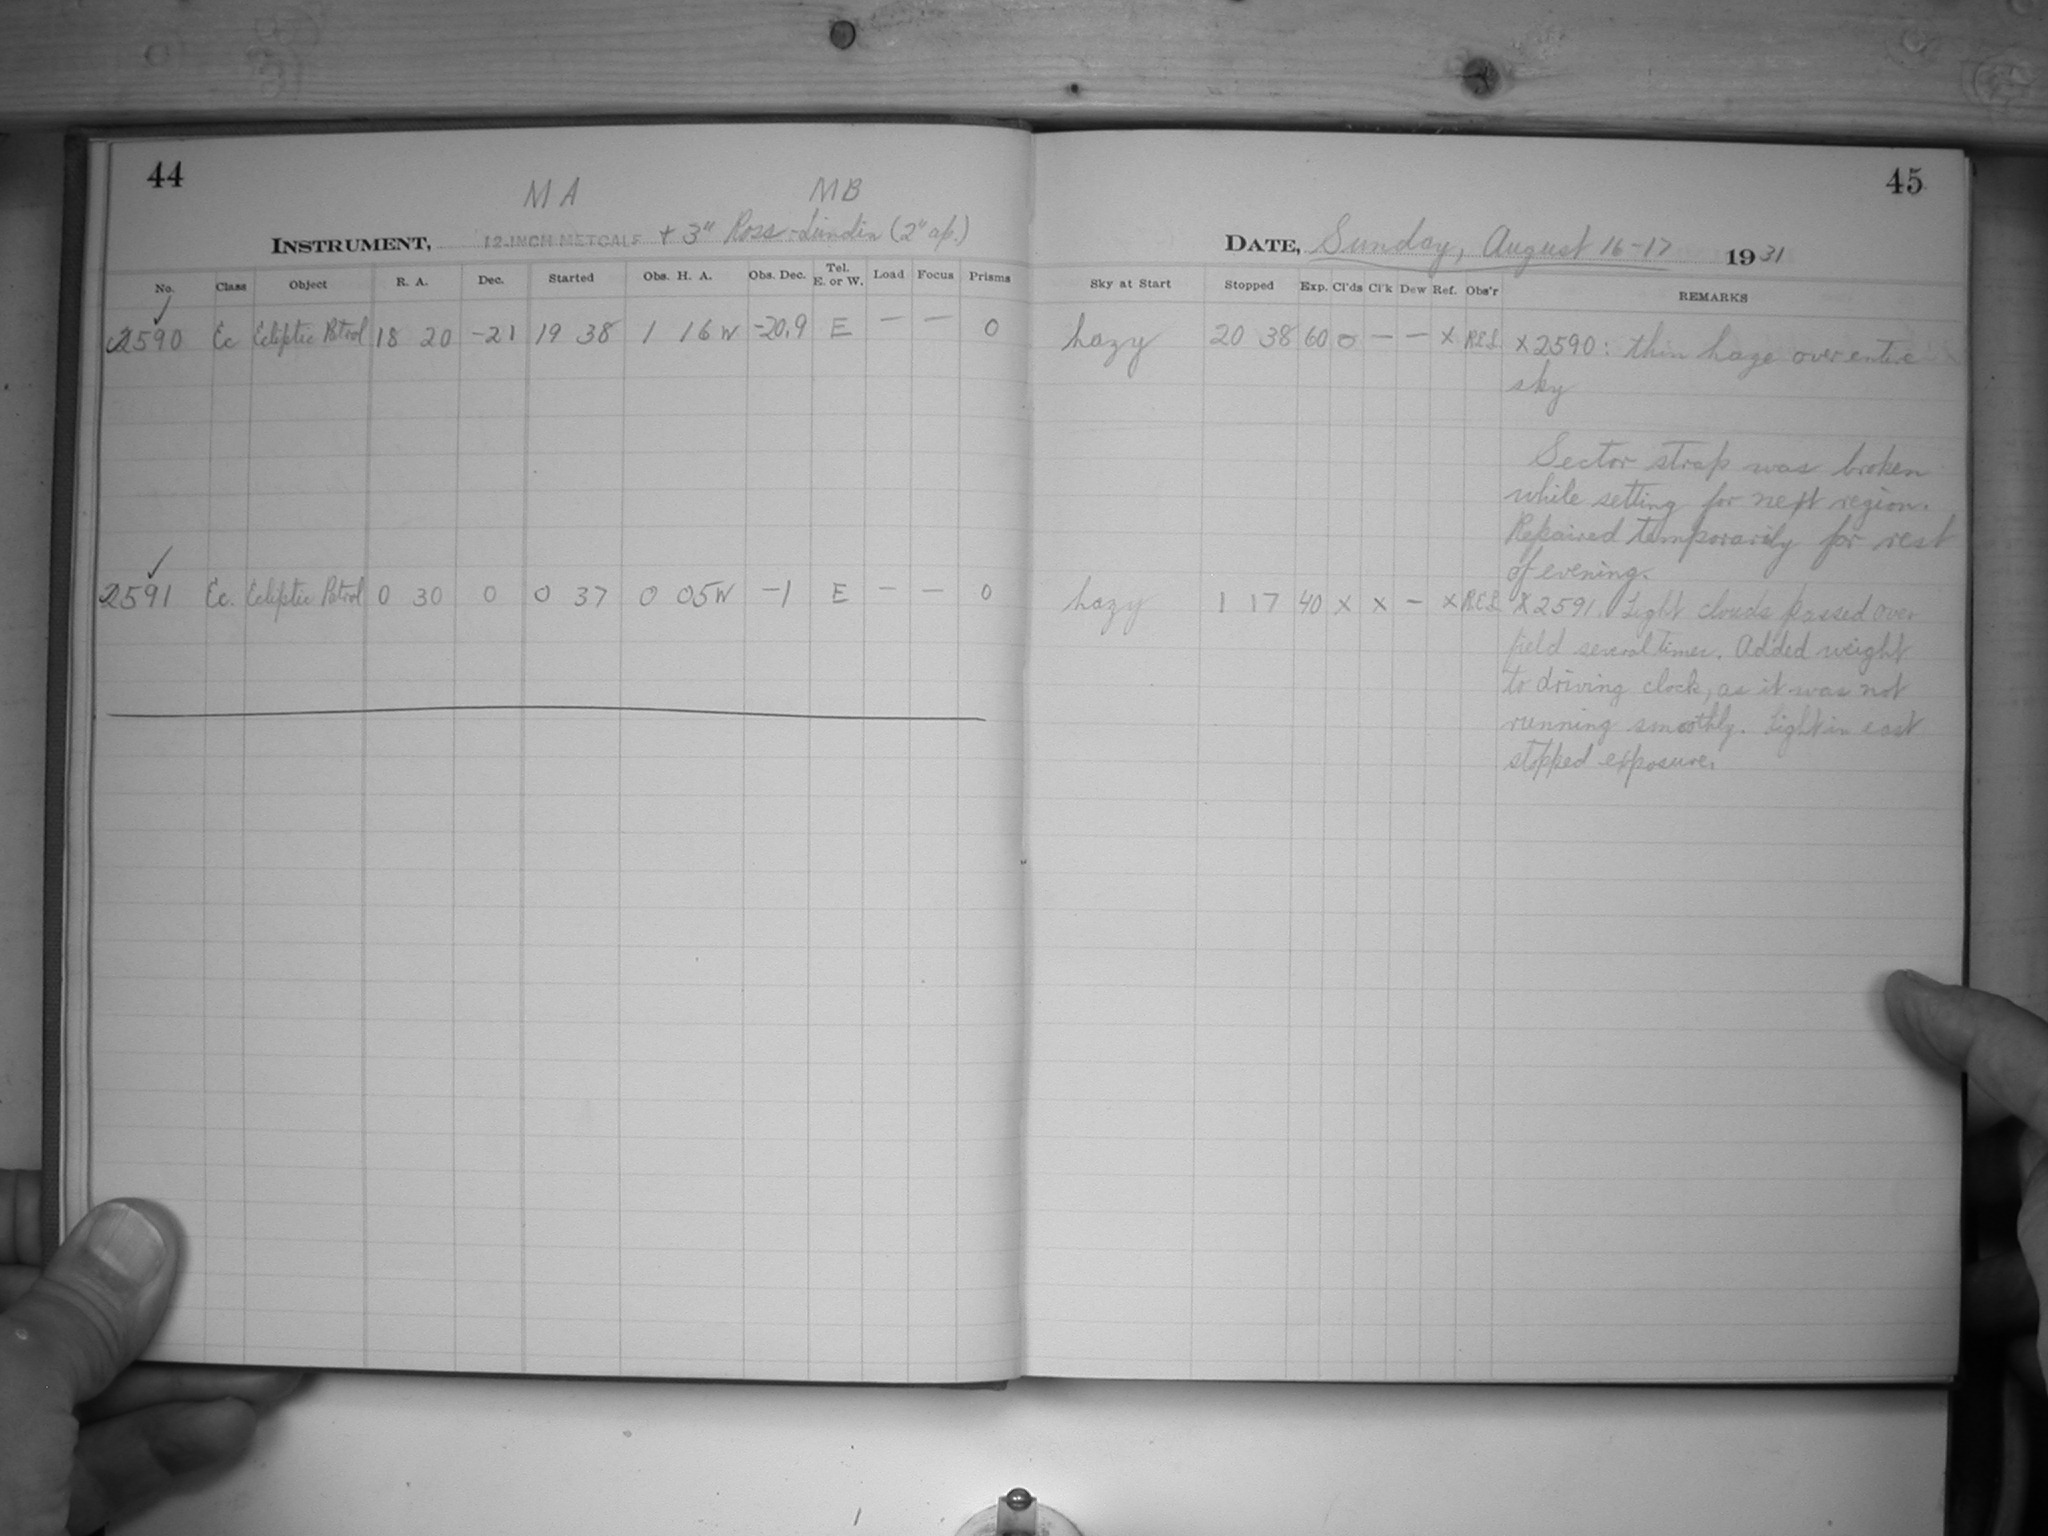 44
MA MB
INSTRUMENT, 12-INCH METCALF + 3" Ross-Lundin (2" ap.)
No. Class Object R. A. Dec. Started Obs. H. A. Obs. Dec. Tel. E. or W. Load Focus Prisms
✓
2590 Ec Ecliptic Patrol 18 20 -21 19 38 1 16 W -20.9 E — — 0
✓
2591 Ec. Ecliptic Patrol 0 30 0 0 37 0 05 W -1 E — — 0
45
DATE, Sunday, August 16-17 1931
Sky at Start Stopped Exp. Cl'ds Cl'k Dew Ref. Obs'r REMARKS
hazy 20 38 60 0 — — x R.E.S. x2590: thin haze over entire
sky
Sector strap was broken
while setting for next region.
Repaired temporarily for rest
of evening.
hazy 1 17 40 x x — x R.E.S. x2591. Light clouds passed over
field several times. Added weight
to driving clock, as it was not
running smoothly. Light in east
stopped exposure.